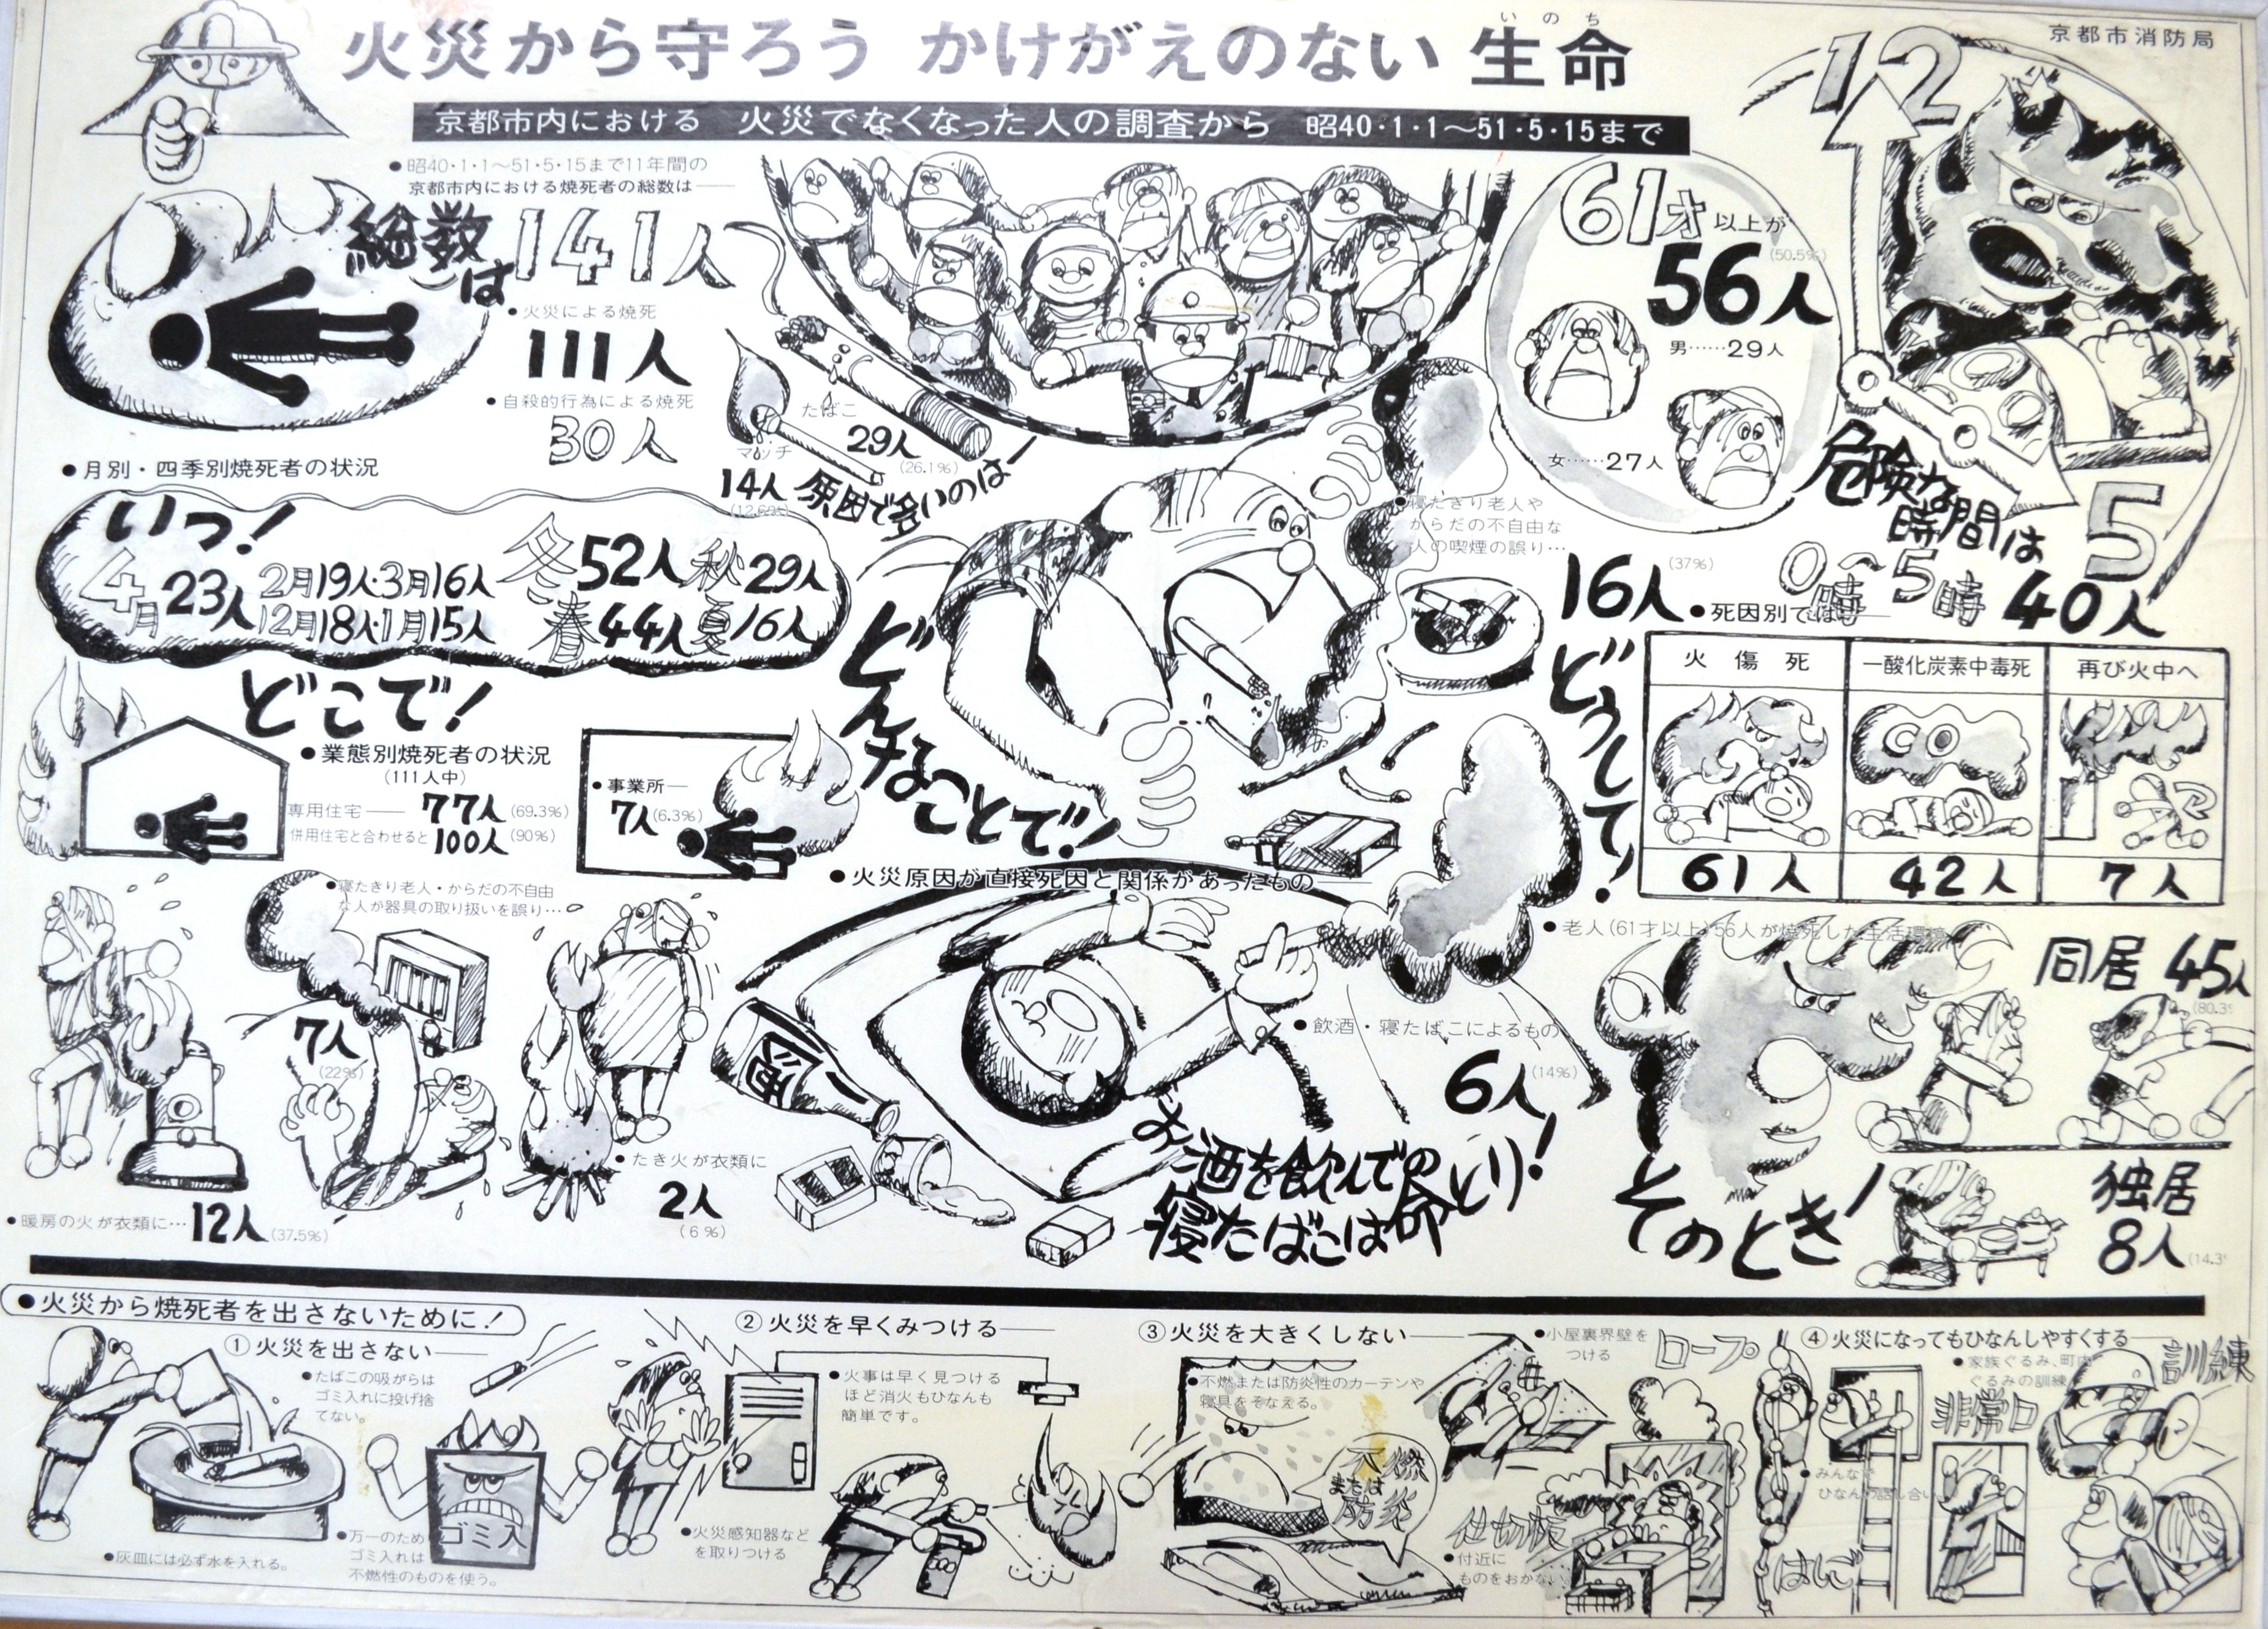 京都市消防局
火災から守ろう かけがえのない 生命
いのち
京都市内における 火災でなくなった人の調査から 昭40・1・1〜51・5・15まで
●昭40・1・1〜51・5・15まで11年間の
京都市内における焼死者の総数は──
総数は141人
●火災による焼死
111人
●自殺的行為による焼死
30人
たばこ
29人
(26.1%)
マッチ
14人
(12.6%)
原因で多いのは─
61才以上が
56人
(50.5%)
男……29人
女……27人
12
5
危険な時間は
0時〜5時
40人
●月別・四季別焼死者の状況
いつ!
4月23人
2月19人・3月16人
12月18人・1月15人
冬52人 秋29人
春44人 夏16人
どこで!
●業態別焼死者の状況
(111人中)
専用住宅── 77人(69.3%)
併用住宅と合わせると100人(90%)
●事業所─
7人(6.3%)
どんなことで!
●寝たきり老人や
からだの不自由な
人の喫煙の誤り…
16人(37%)
どうして!
●死因別では──
火傷死
一酸化炭素中毒死
再び火中へ
61人
42人
7人
●火災原因が直接死因と関係があったもの──
●寝たきり老人・からだの不自由
な人が器具の取り扱いを誤り…
7人
(22%)
●暖房の火が衣類に…12人(37.5%)
●たき火が衣類に
2人
(6%)
酒
●飲酒・寝たばこによるもの
6人(14%)
お酒を飲んでの
寝たばこは命とり!
●老人(61才以上)56人が焼死した生活環境
同居 45人
(80.3%
そのとき!
独居
8人
(14.3
●火災から焼死者を出さないために!
①火災を出さない──
●たばこの吸がらは
ゴミ入れに投げ捨
てない。
●灰皿には必ず水を入れる。
●万一のため
ゴミ入れは
不燃性のものを使う。
ゴミ入
②火災を早くみつける──
●火事は早く見つける
ほど消火もひなんも
簡単です。
●火災感知器など
を取りつける
③火災を大きくしない──
●不燃または防炎性のカーテンや
寝具をそなえる。
不燃
または
防炎
●小屋裏界壁を
つける
仕切板
●付近に
ものをおかない
④火災になってもひなんしやすくする──
ロープ
●家族ぐるみ、町内
ぐるみの訓練
訓練
非常口
●みんなで
ひなんの話し合い
はしご